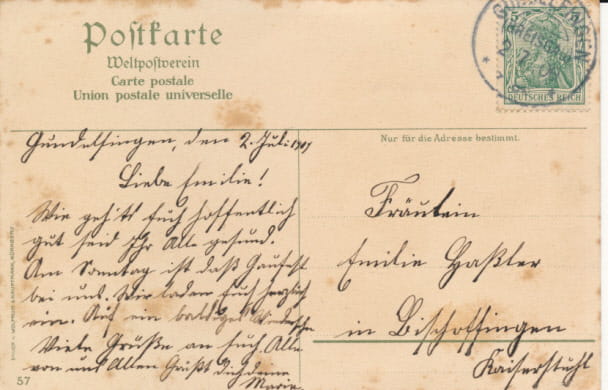 Postkarte
Weltpostverein
Carte postale
Union postale universelle
GUNDELFINGEN
(BREISGAU)
DEUTSCHES REICH
Nur für die Adresse bestimmt.
Gundelfingen, den 2. Juli 1907
Liebe Emilie!
Wie geht's Euch hoffentlich
gut seid Ihr Alle gesund.
Am Sonntag ist daß Gaufest
bei uns. Wir laden Euch herzlich
ein. Auf ein baldiges Wiedersehn
Viele Grüße an Euch Alle
von uns Allen Grüßt dich deine
Marie
Fräulein
Emilie Haßler
in Bischoffingen
Kaiserstuhl
57